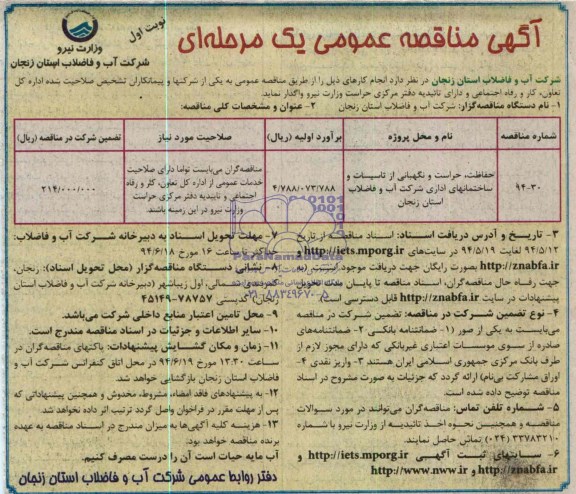 نوبت اول
وزارت نیرو
شرکت آب و فاضلاب استان زنجان
آگهی مناقصه عمومی یک مرحله‌ای
شرکت آب و فاضلاب استان زنجان در نظر دارد انجام کارهای ذیل را از طریق مناقصه عمومی به یکی از شرکتها و پیمانکاران تشخیص صلاحیت شده اداره کل
تعاون، کار و رفاه اجتماعی و دارای تائیدیه دفتر مرکزی حراست وزارت نیرو واگذار نماید.
۱- نام دستگاه مناقصه‌گزار: شرکت آب و فاضلاب استان زنجان ۲- عنوان و مشخصات کلی مناقصه:
شماره مناقصه نام و محل پروژه برآورد اولیه (ریال) صلاحیت مورد نیاز تضمین شرکت در مناقصه (ریال)
۹۴-۳۰ حفاظت، حراست و نگهبانی از تاسیسات و ساختمانهای اداری شرکت آب و فاضلاب استان زنجان ۴/۷۸۸/۰۷۳/۷۸۸ مناقصه‌گران می‌بایست تواما دارای صلاحیت خدمات عمومی از اداره کل تعاون، کار و رفاه اجتماعی و تاییدیه دفتر مرکزی حراست وزارت نیرو در این زمینه باشند. ۲۱۴/۰۰۰/۰۰۰
۳- تاریخ و آدرس دریافت اسناد: اسناد مناقصه از تاریخ
۹۴/۵/۱۲ لغایت ۹۴/۵/۱۹ در سایت‌های http://iets.mporg.ir و
http://znabfa.ir بصورت رایگان جهت دریافت موجود است. (به
جهت رفاه حال مناقصه‌گران، اسناد مناقصه تا پایان مهلت تحویل
پیشنهادات در سایت http://znabfa.ir قابل دسترسی است)
۴- نوع تضمین شرکت در مناقصه: تضمین شرکت در مناقصه
می‌بایست به یکی از صور ۱- ضمانتنامه بانکی ۲- ضمانتنامه‌های
صادره از سوی موسسات اعتباری غیربانکی که دارای مجوز لازم از
طرف بانک مرکزی جمهوری اسلامی ایران هستند ۳- واریز نقدی ۴-
اوراق مشارکت بی‌نام) ارائه گردد که جزئیات به صورت مشروح در اسناد
مناقصه توضیح داده شده است.
۵- شماره تلفن تماس: مناقصه‌گران می‌توانند در مورد سوالات
مناقصه و همچنین نحوه اخذ تائیدیه از وزارت نیرو با شماره
۳۳۷۸۳۲۱۰ (۰۲۴) تماس حاصل نمایند.
۶- سایتهای ثبت آگهی http://iets.mporg.ir و
http://znabfa.ir و http://www.nww.ir
۷- مهلت تحویل اسناد به دبیرخانه شرکت آب و فاضلاب:
حداکثر تا ساعت ۱۶ مورخ ۹۴/۶/۱۸
۸- نشانی دستگاه مناقصه‌گزار (محل تحویل اسناد): زنجان،
کمربندی شمالی، اول زیباشهر (دبیرخانه شرکت آب و فاضلاب استان
زنجان) کدپستی ۷۸۷۵۷-۴۵۱۴۹
۹- محل تامین اعتبار منابع داخلی شرکت می‌باشد.
۱۰- سایر اطلاعات و جزئیات در اسناد مناقصه مندرج است.
۱۱- زمان و مکان گشایش پیشنهادات: پاکتهای مناقصه‌گران در
ساعت ۱۳:۳۰ مورخ ۹۴/۶/۱۹ در محل اتاق کنفرانس شرکت آب و
فاضلاب استان زنجان بازگشایی خواهد شد.
۱۲- به پیشنهادهای فاقد امضاء، مشروط، مخدوش و همچنین پیشنهاداتی که
پس از مهلت مقرر در فراخوان واصل گردد ترتیب اثر داده نخواهد شد.
۱۳- هزینه کلیه آگهی‌ها به میزان مندرج در اسناد مناقصه به عهده
برنده مناقصه خواهد بود.
آب مایه حیات است آن را درست مصرف کنیم.
دفتر روابط عمومی شرکت آب و فاضلاب استان زنجان
ParaNamadData
۰۲۱-۸۸۳۴۹۶۷۰-۵